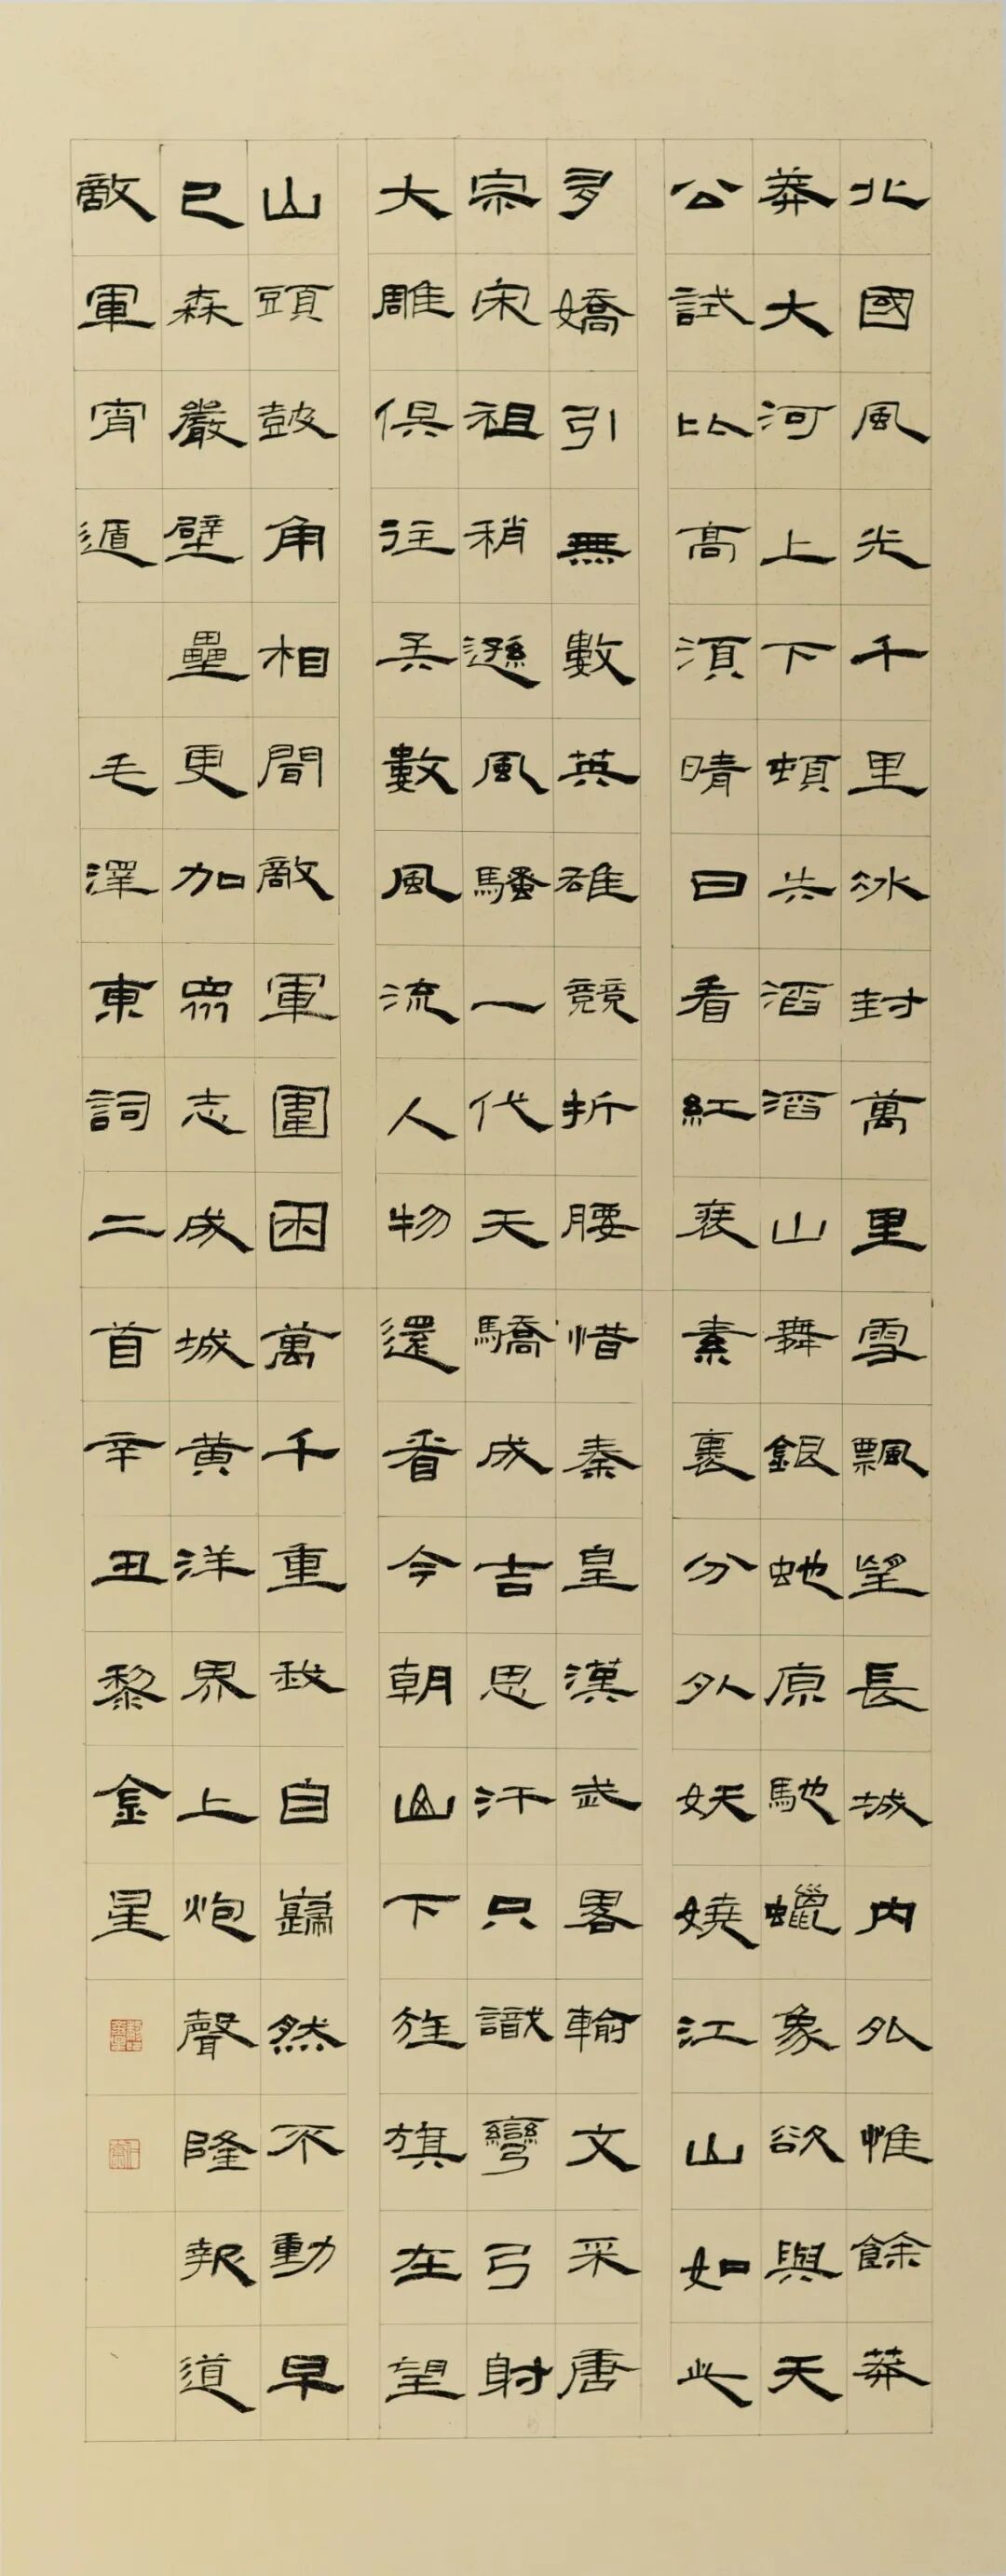 北國風光千里冰封萬里雪飄望長城內外惟餘莽
莽大河上下頓失滔滔山舞銀蛇原馳蠟象欲與天
公試比高須晴日看紅裝素裹分外妖嬈江山如此
多嬌引無數英雄競折腰惜秦皇漢武畧輸文采唐
宗宋祖稍遜風騷一代天驕成吉思汗只識彎弓射
大雕俱往矣數風流人物還看今朝山下旌旗在望
山頭鼓角相聞敵軍圍困萬千重我自巋然不動早
已森嚴壁壘更加眾志成城黃洋界上炮聲隆報道
敵軍宵遁 毛澤東詞二首辛丑黎金星